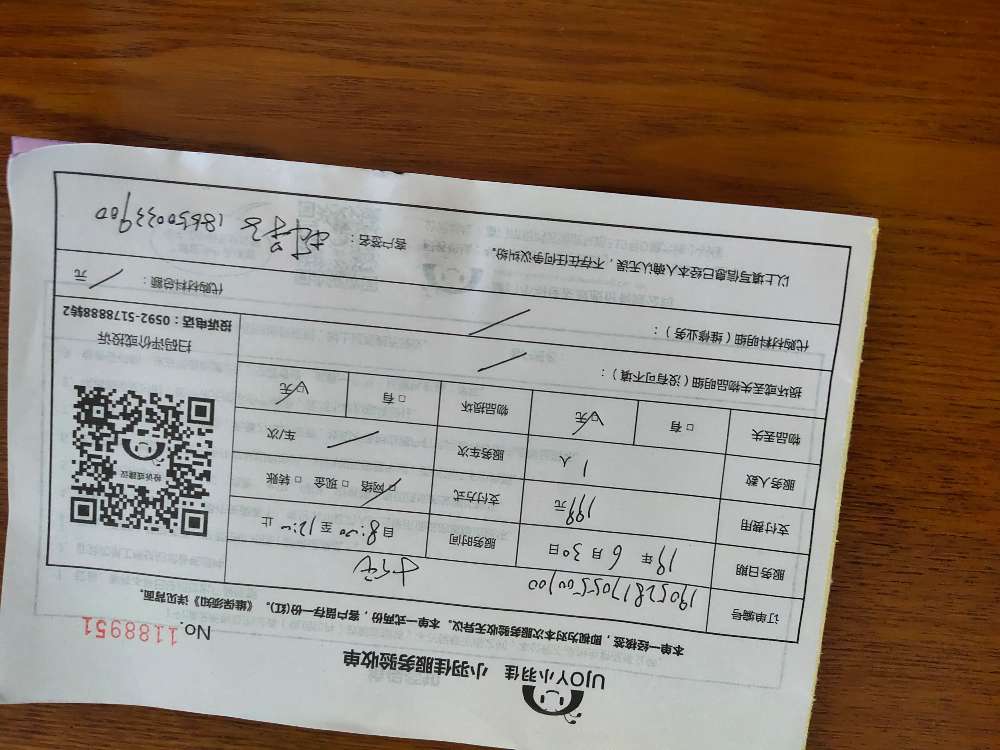 UJOY小羽佳 小羽佳服务验收单
No. 1188951
本单一经核签,即视为对本次服务验收无异议。本单一式两份,客户留存一份(红)。《维保须知》详见背面。
订单编号 19052817055500100
服务日期 19年6月30日 服务时间 自8:00至12:00止
支付费用 199元 支付方式 ☑网络 □现金 □转账
服务人数 1人 服务车次 / 车/次
物品丢失 □有 ☑无 物品损坏 □有 ☑无
损坏或丢失物品明细(没有可不填): /
代购材料明细(维修业务): /
代购材料总额: / 元
以上填写信息已经本人确认无误,不存在任何争议纠纷。
客户签名: 18650033900
投诉或建议
扫码评价或投诉
投诉电话:0592-5178888转2